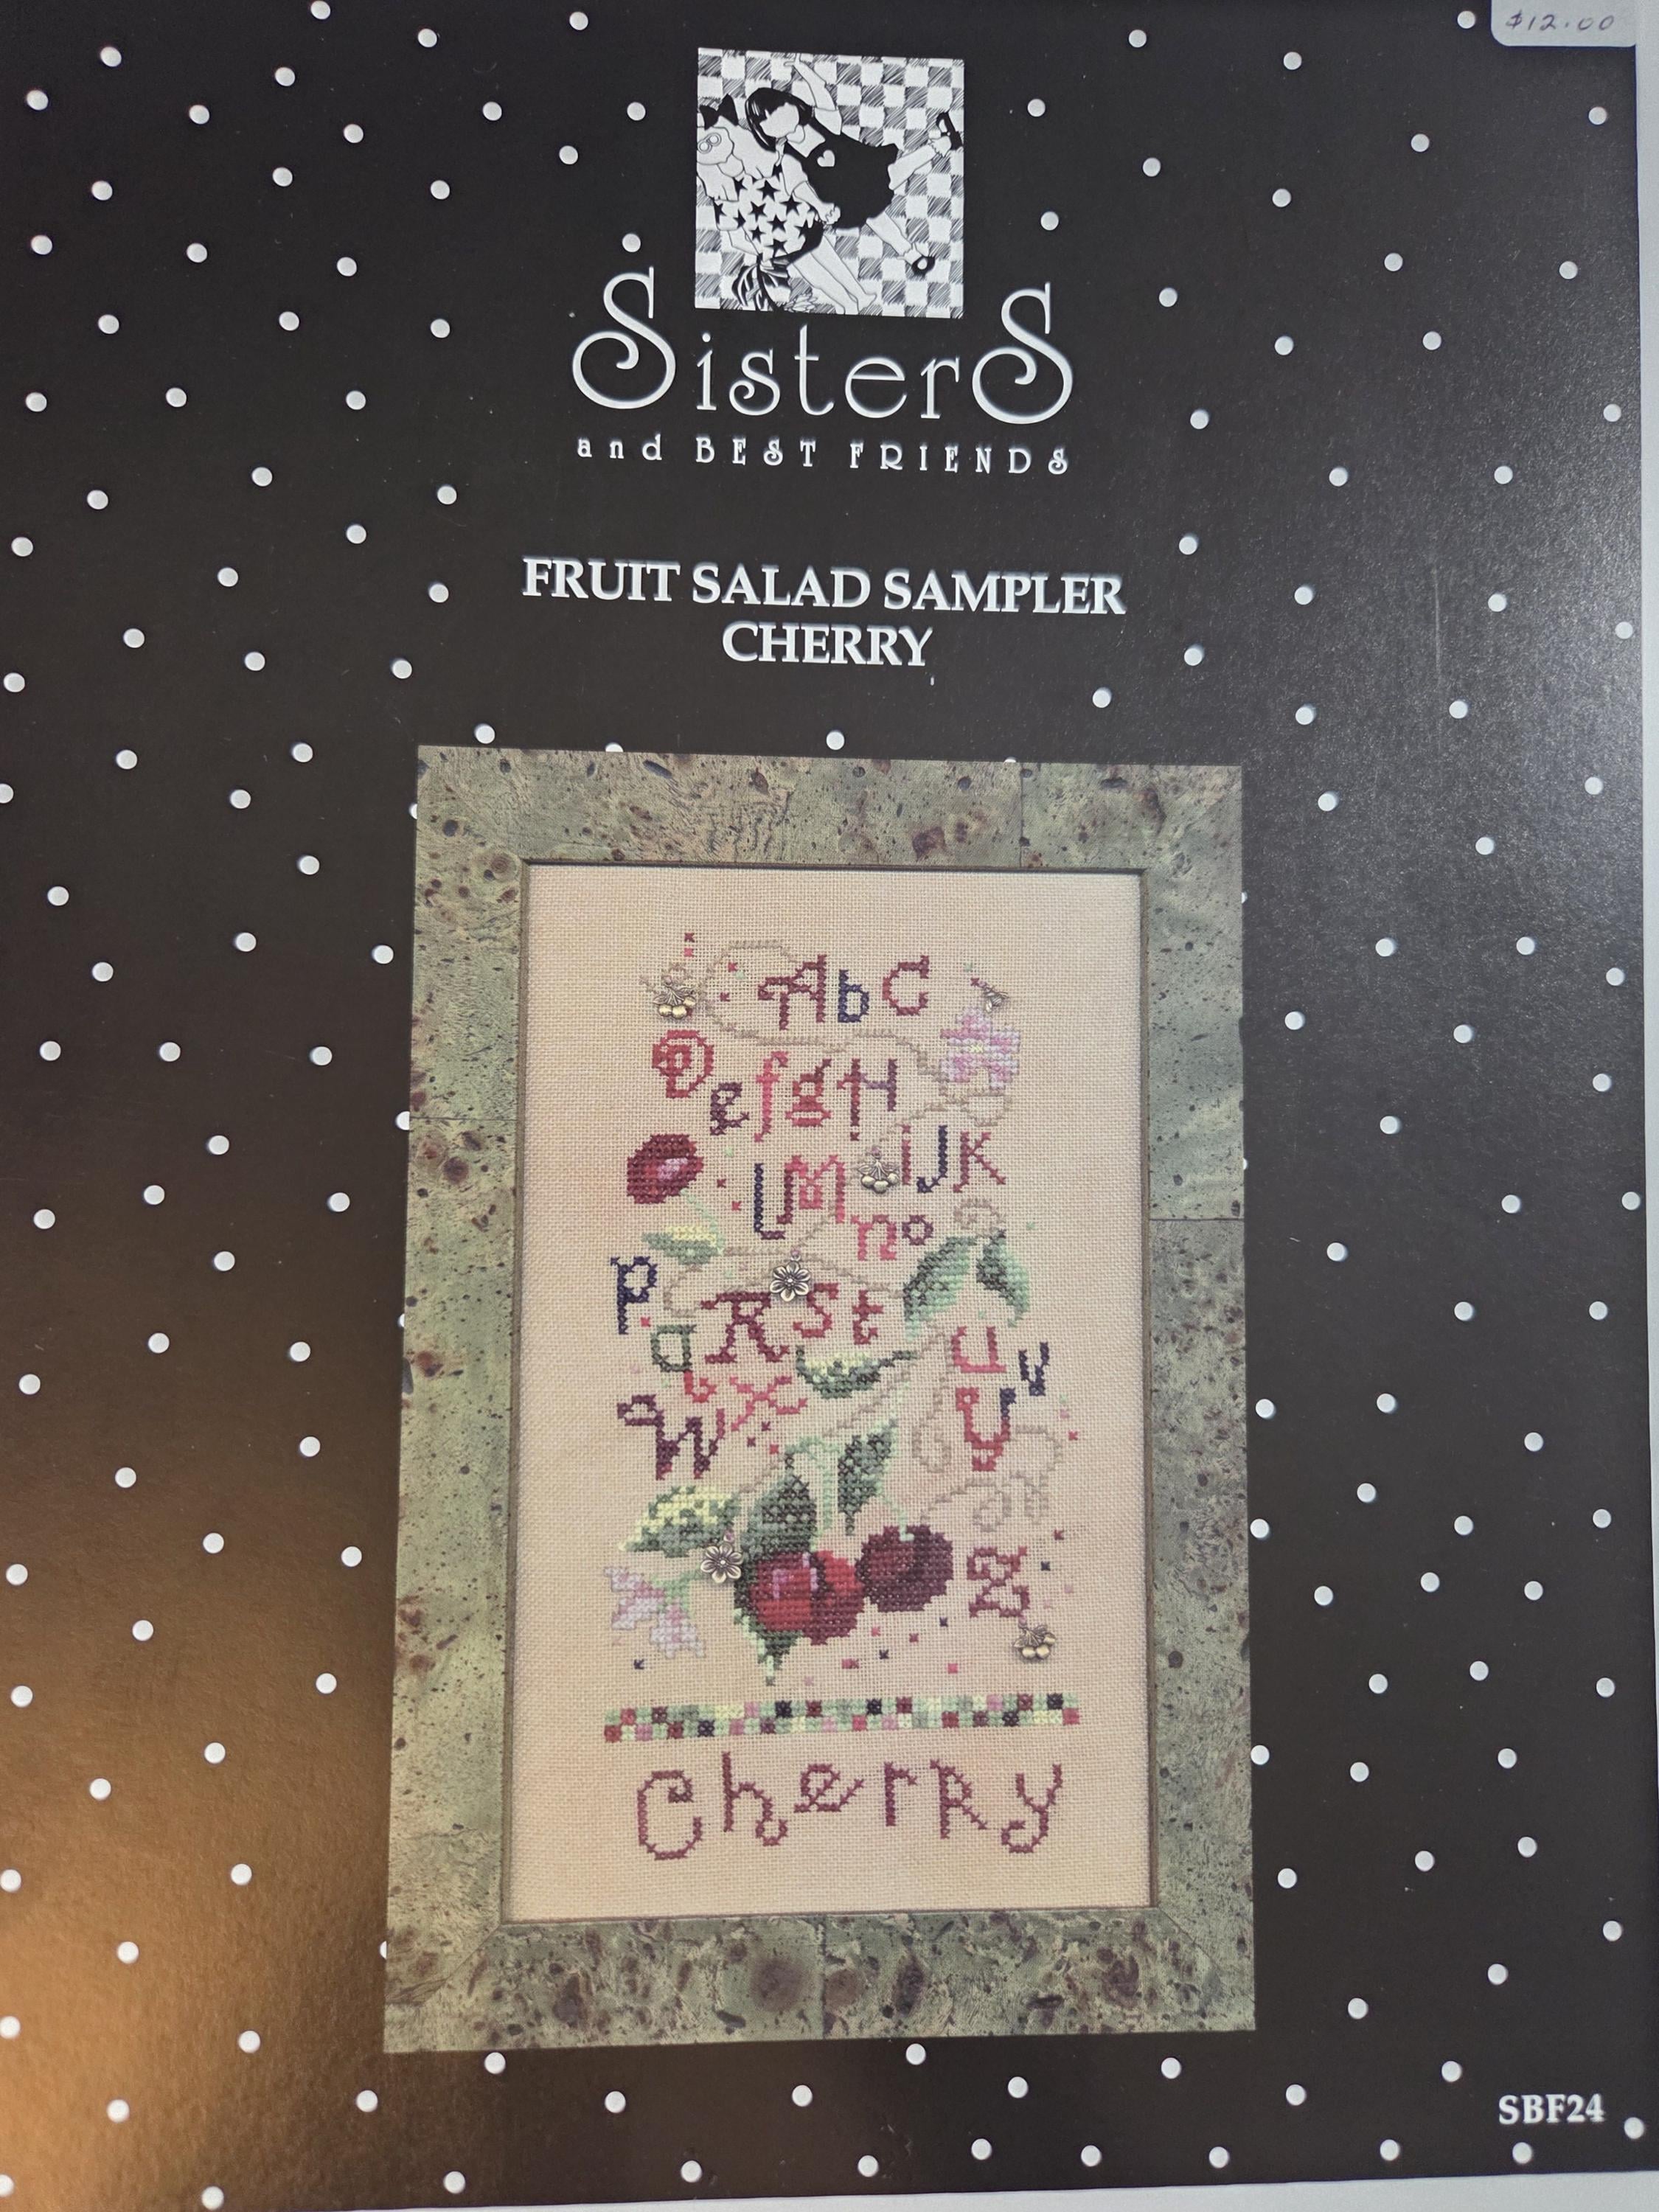 $12.00
SisterS
and BEST FRIENDS
FRUIT SALAD SAMPLER
CHERRY
AbC
DefgH
iJK
LM
no
P
qRst
U
v
WX
y
Z
Cherry
SBF24